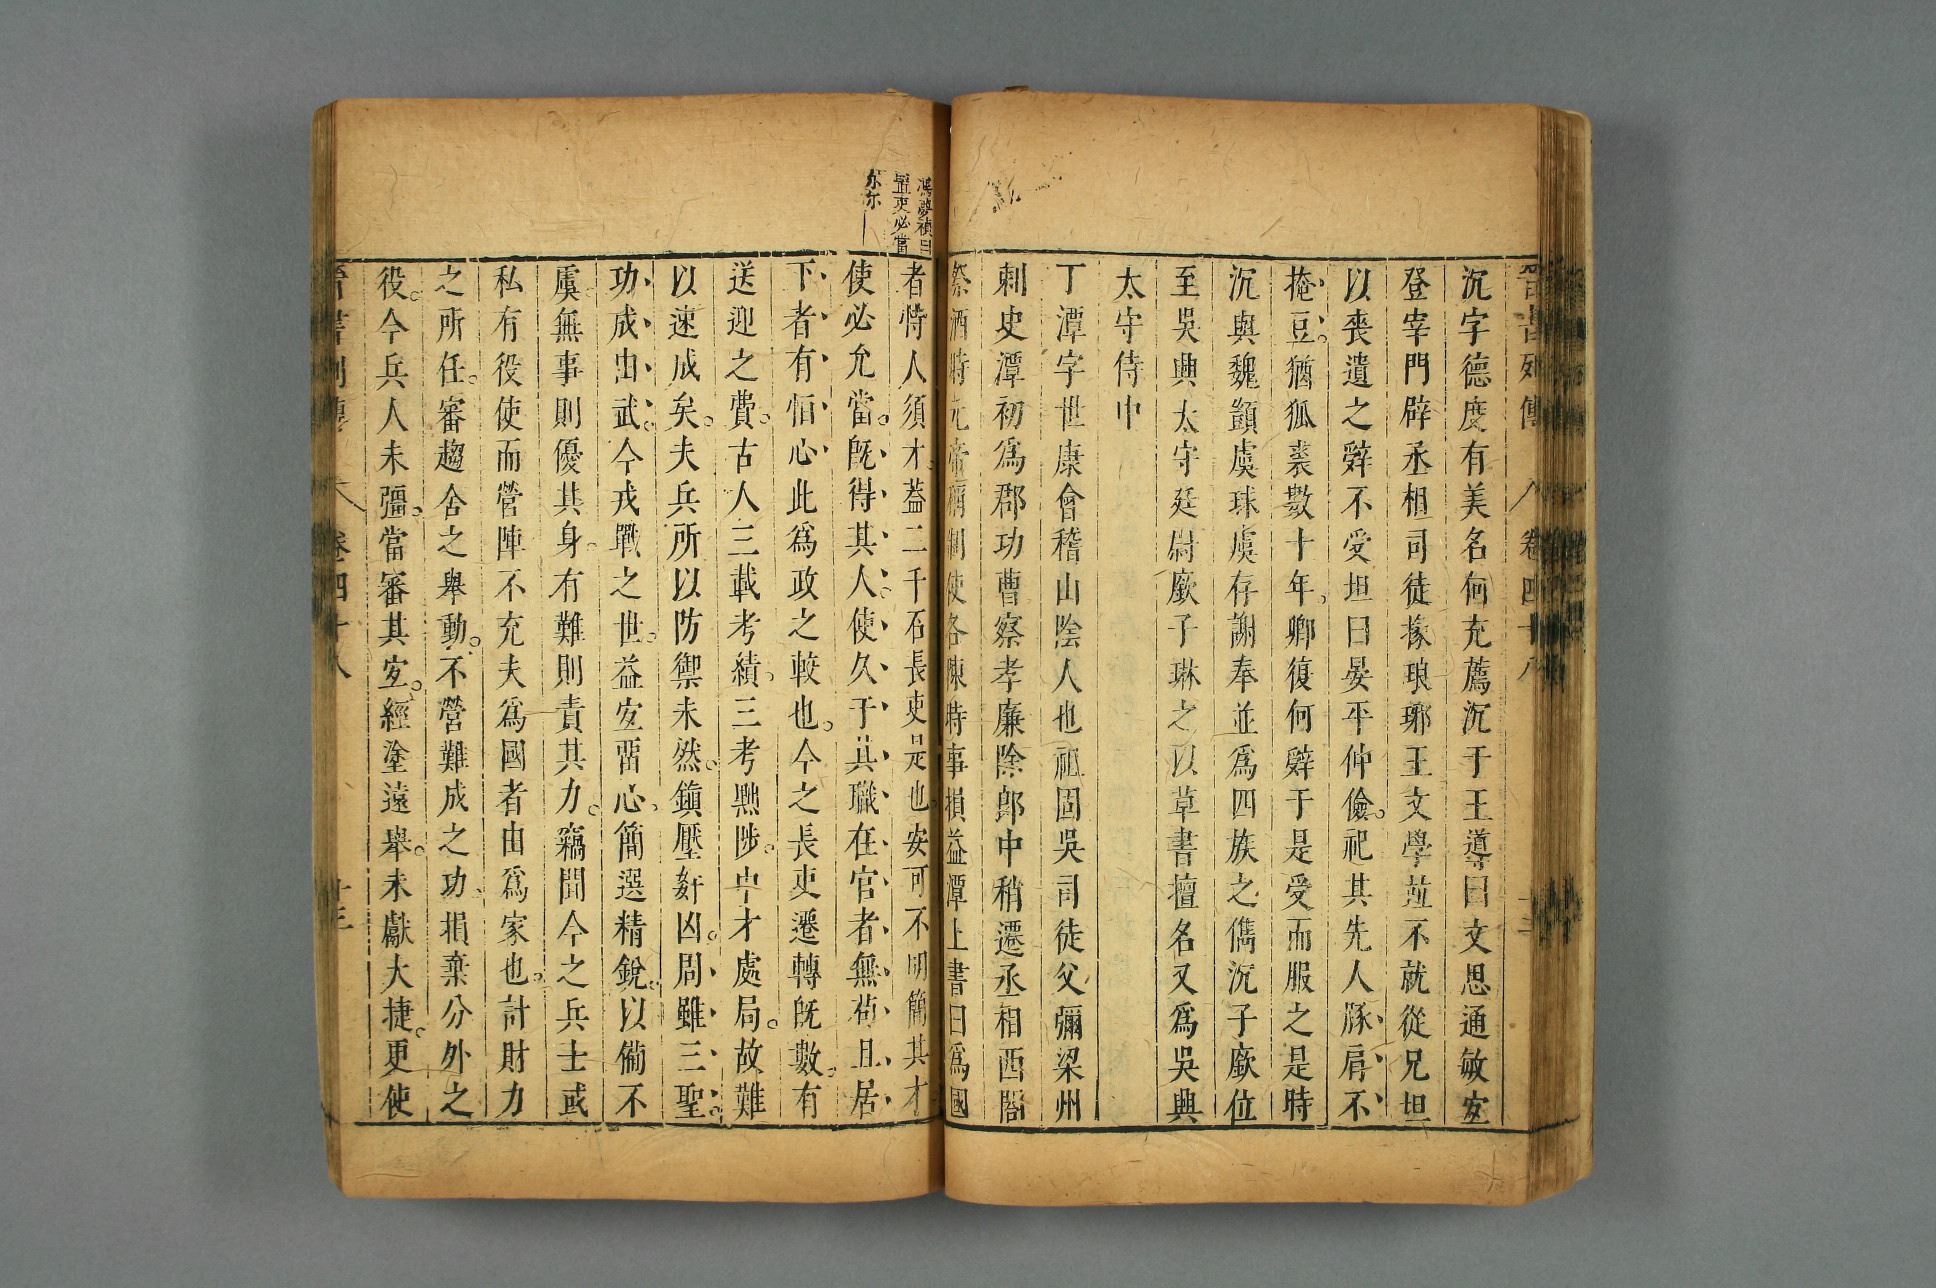 晉書列傳 卷四十八 十三
沉字德度有美名何充薦沉于王導曰文思通敏宜
登宰門辟丞相司徒掾琅琊王文學並不就從兄坦
以喪遺之辭不受坦曰晏平仲儉祀其先人豚肩不
掩豆猶狐裘數十年卿復何辭于是受而服之是時
沉與魏顗虞球虞存謝奉並爲四族之儁沉子廞位
至吳興太守廷尉廞子琳之以草書擅名又爲吳興
太守侍中
丁潭字世康會稽山陰人也祖固吳司徒父彌梁州
刺史潭初爲郡功曹察孝廉除郎中稍遷丞相西閤
祭酒時元帝稱制使各陳時事損益潭上書曰爲國
馮夢禎曰
置吏必當
亦尔
者恃人須才蓋二千石長吏是也安可不明簡其才
使必允當旣得其人使久于其職在官者無苟且居
下者有恒心此爲政之較也今之長吏遷轉旣數有
送迎之費古人三載考績三考黜陟中才處局故難
以速成矣夫兵所以防禦未然鎮壓姧凶周雖三聖
功成由武今戎戰之世益宜畱心簡選精銳以備不
虞無事則優其身有難則責其力竊聞今之兵士或
私有役使而營陣不充夫爲國者由爲家也計財力
之所任審趨舍之舉動不營難成之功損棄分外之
役今兵人未彊當審其宜經塗遠舉未獻大捷更使
晉書列傳 卷四十八 十三